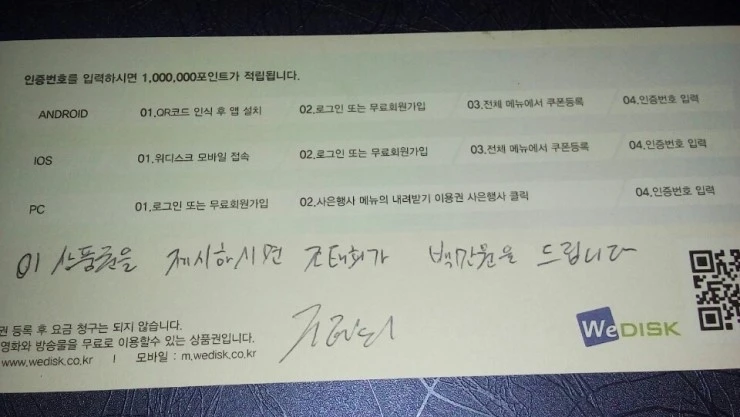 인증번호를 입력하시면 1,000,000포인트가 적립됩니다.
ANDROID 01.QR코드 인식 후 앱 설치 02.로그인 또는 무료회원가입 03.전체 메뉴에서 쿠폰등록 04.인증번호 입력
IOS 01.위디스크 모바일 접속 02.로그인 또는 무료회원가입 03.전체 메뉴에서 쿠폰등록 04.인증번호 입력
PC 01.로그인 또는 무료회원가입 02.사은행사 메뉴의 내려받기 이용권 사은행사 클릭 04.인증번호 입력
이 상품권을 제시하시면 조태희가 백만원을 드립니다
권 등록 후 요금 청구는 되지 않습니다.
영화와 방송물을 무료로 이용할수 있는 상품권입니다.
www.wedisk.co.kr I 모바일 : m.wedisk.co.kr
WeDISK